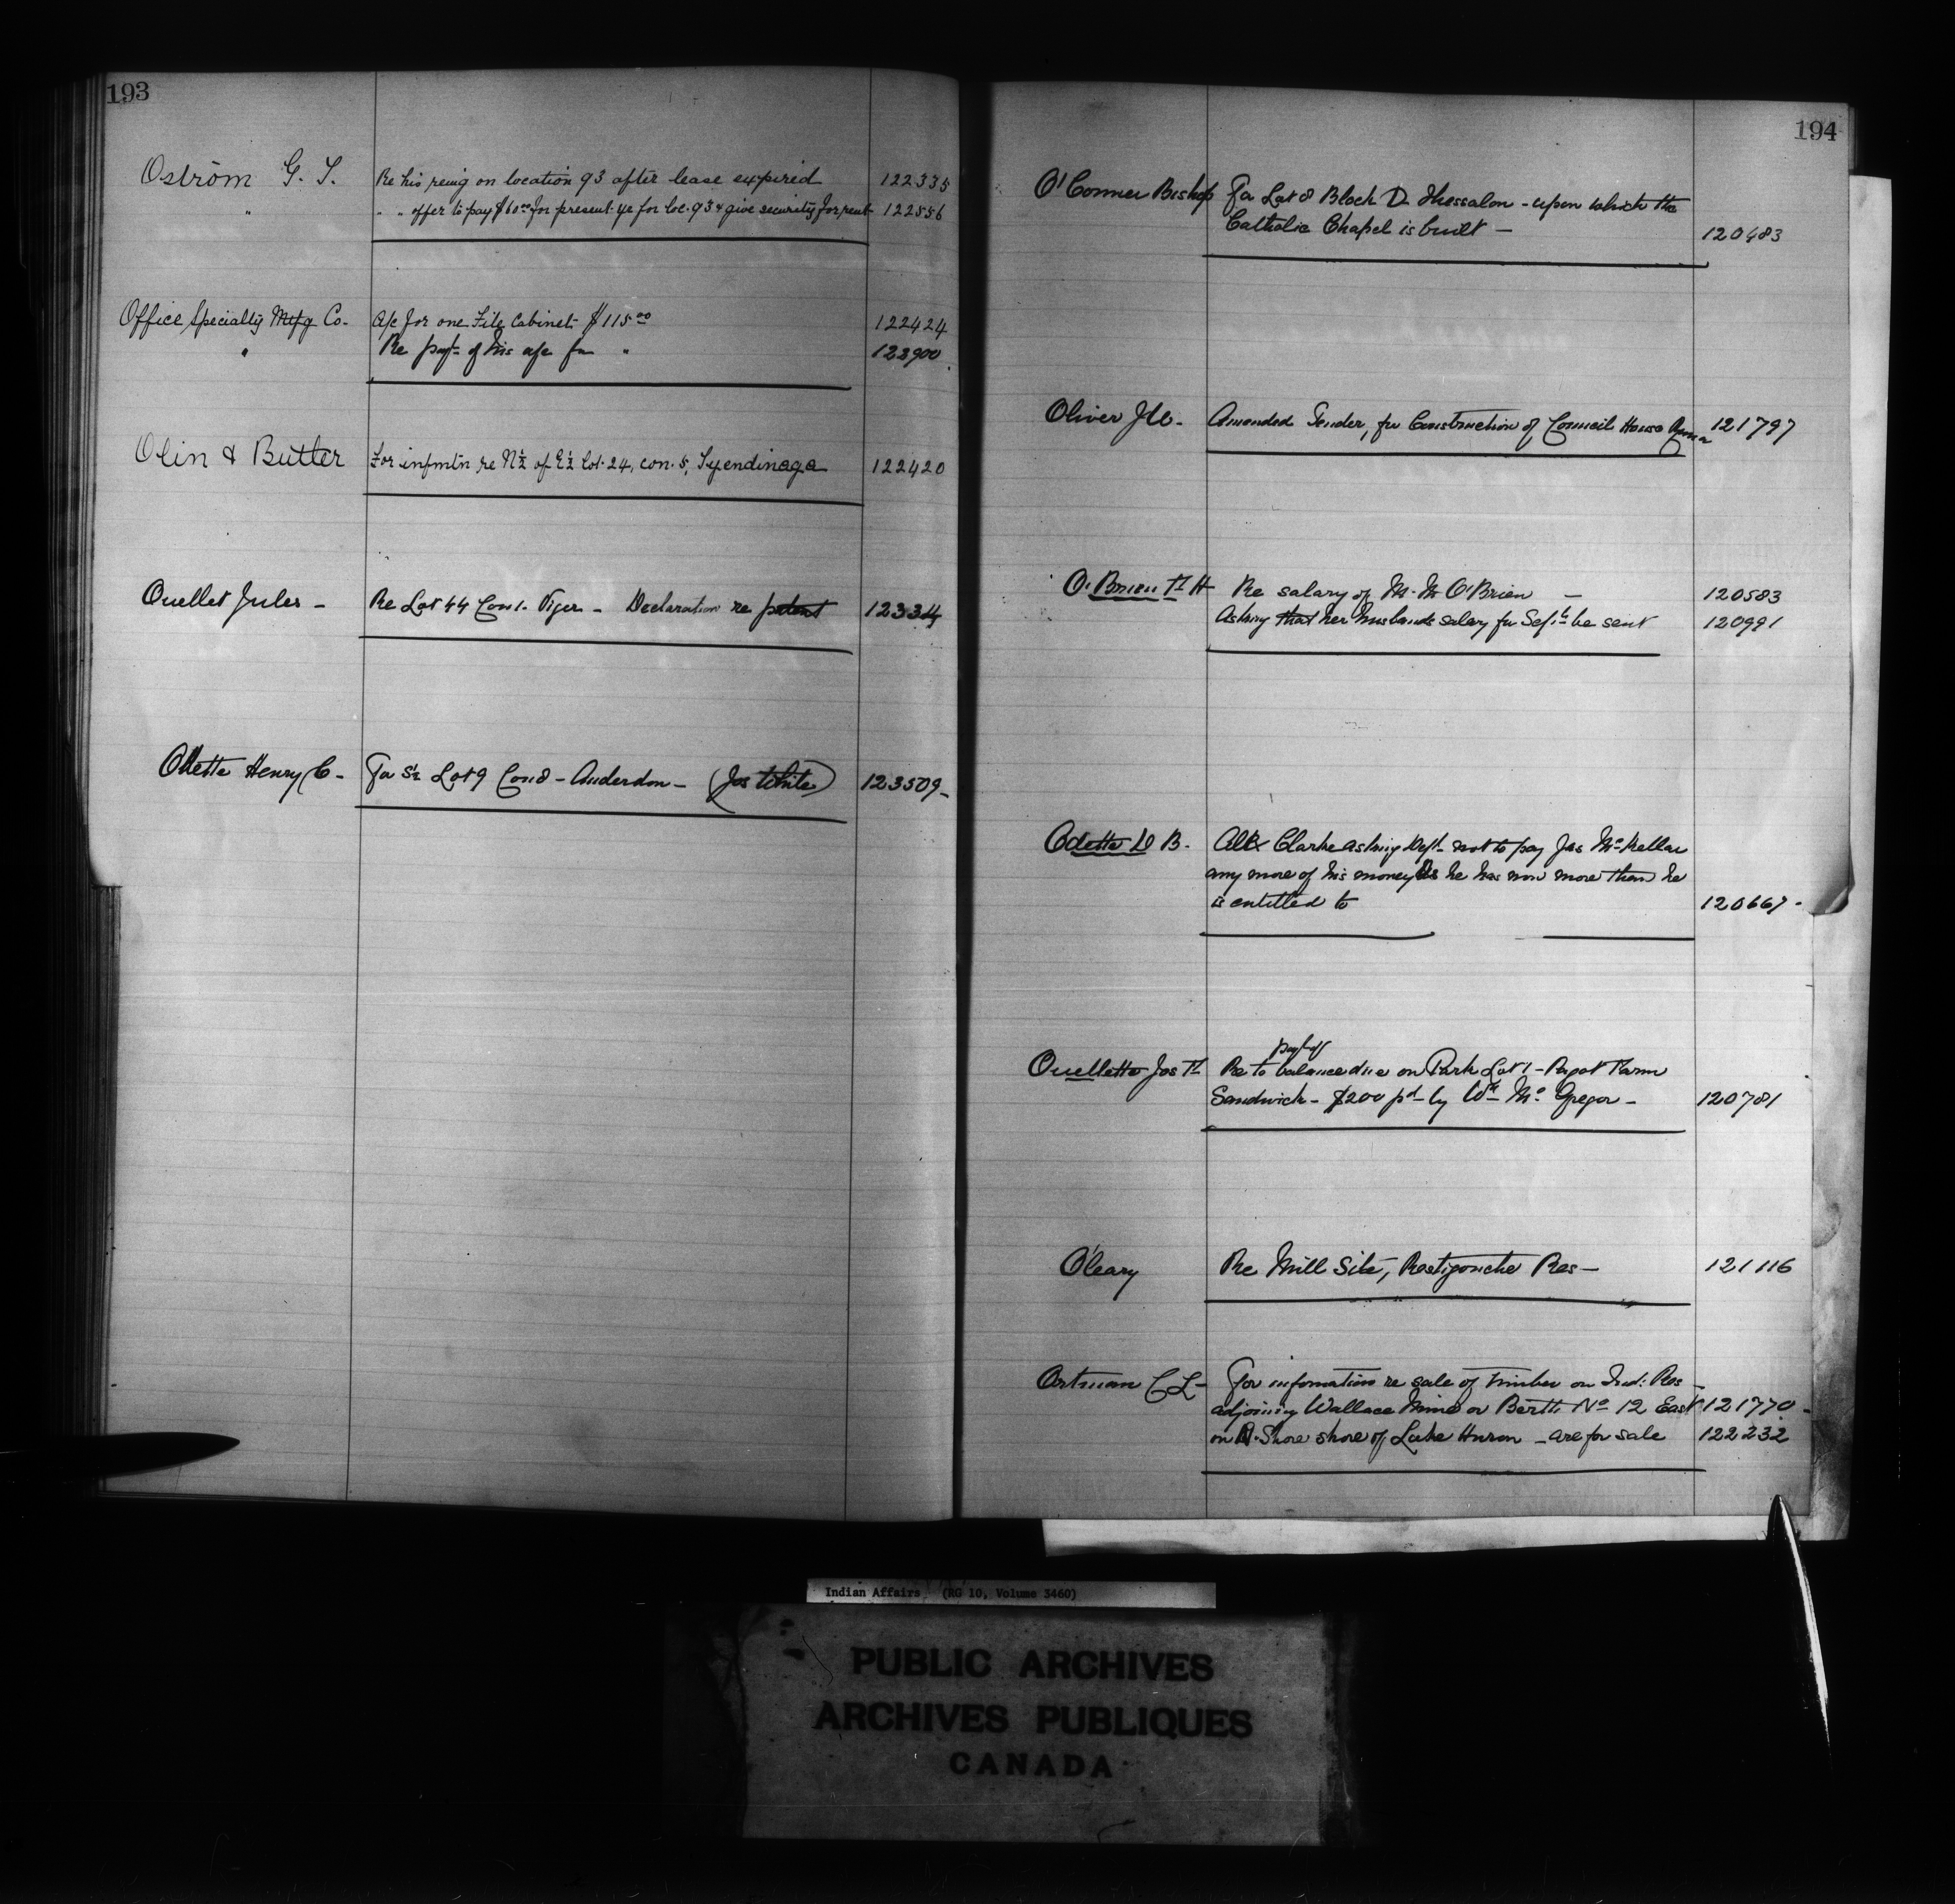 193
Oström G. T. Re his reing on location 93 after lease expired 122335
" " " offer to pay $60.00 for present ye for loc. 93 & give security for rent 122556
Office Specialty Mfg Co. A/c for one File Cabinet $115.00 122424
" Re payt of his a/c for " 123900
Olin & Butler For infmtn re N½ of E½ Lot 24, con. 5, Tyendinaga 122420
Ouellet Jules - Re Lot 44 Con 1. Viger - Declaration re patent 12334
Odette Henry C - For S½ Lot 9 Con 8 - Anderdon - (Jos White) 123509-
194
O'Connor Bishop For Lot 8 Block D. Thessalon - upon which the
Catholic Chapel is built - 120483
Oliver Amended Tender, for Construction of Council House 121797
O'Brien H Re salary of M. O'Brien - 120583
Asking that her husbands salary for Sept be sent 120991
Odette D B. Alex Clarke asking Dept not to pay Jas McKellar
any more of his money as he has now more than he
is entitled to 120667-
payt of
Ouellette Jos Re to balance due on Park Lot 1 - Farm
Sandwich - $200 pd by Wm McGregor - 120781
O'Leary Re Mill Site, Restigouche Res - 121116
Ortman C L - For information re sale of timber on Ind: Res -
adjoining Wallace Mine or Berth No 12 East 121770 -
on N. Shore shore of Lake Huron - are for sale 122232
Indian Affairs (RG 10, Volume 3460)
PUBLIC ARCHIVES
ARCHIVES PUBLIQUES
CANADA